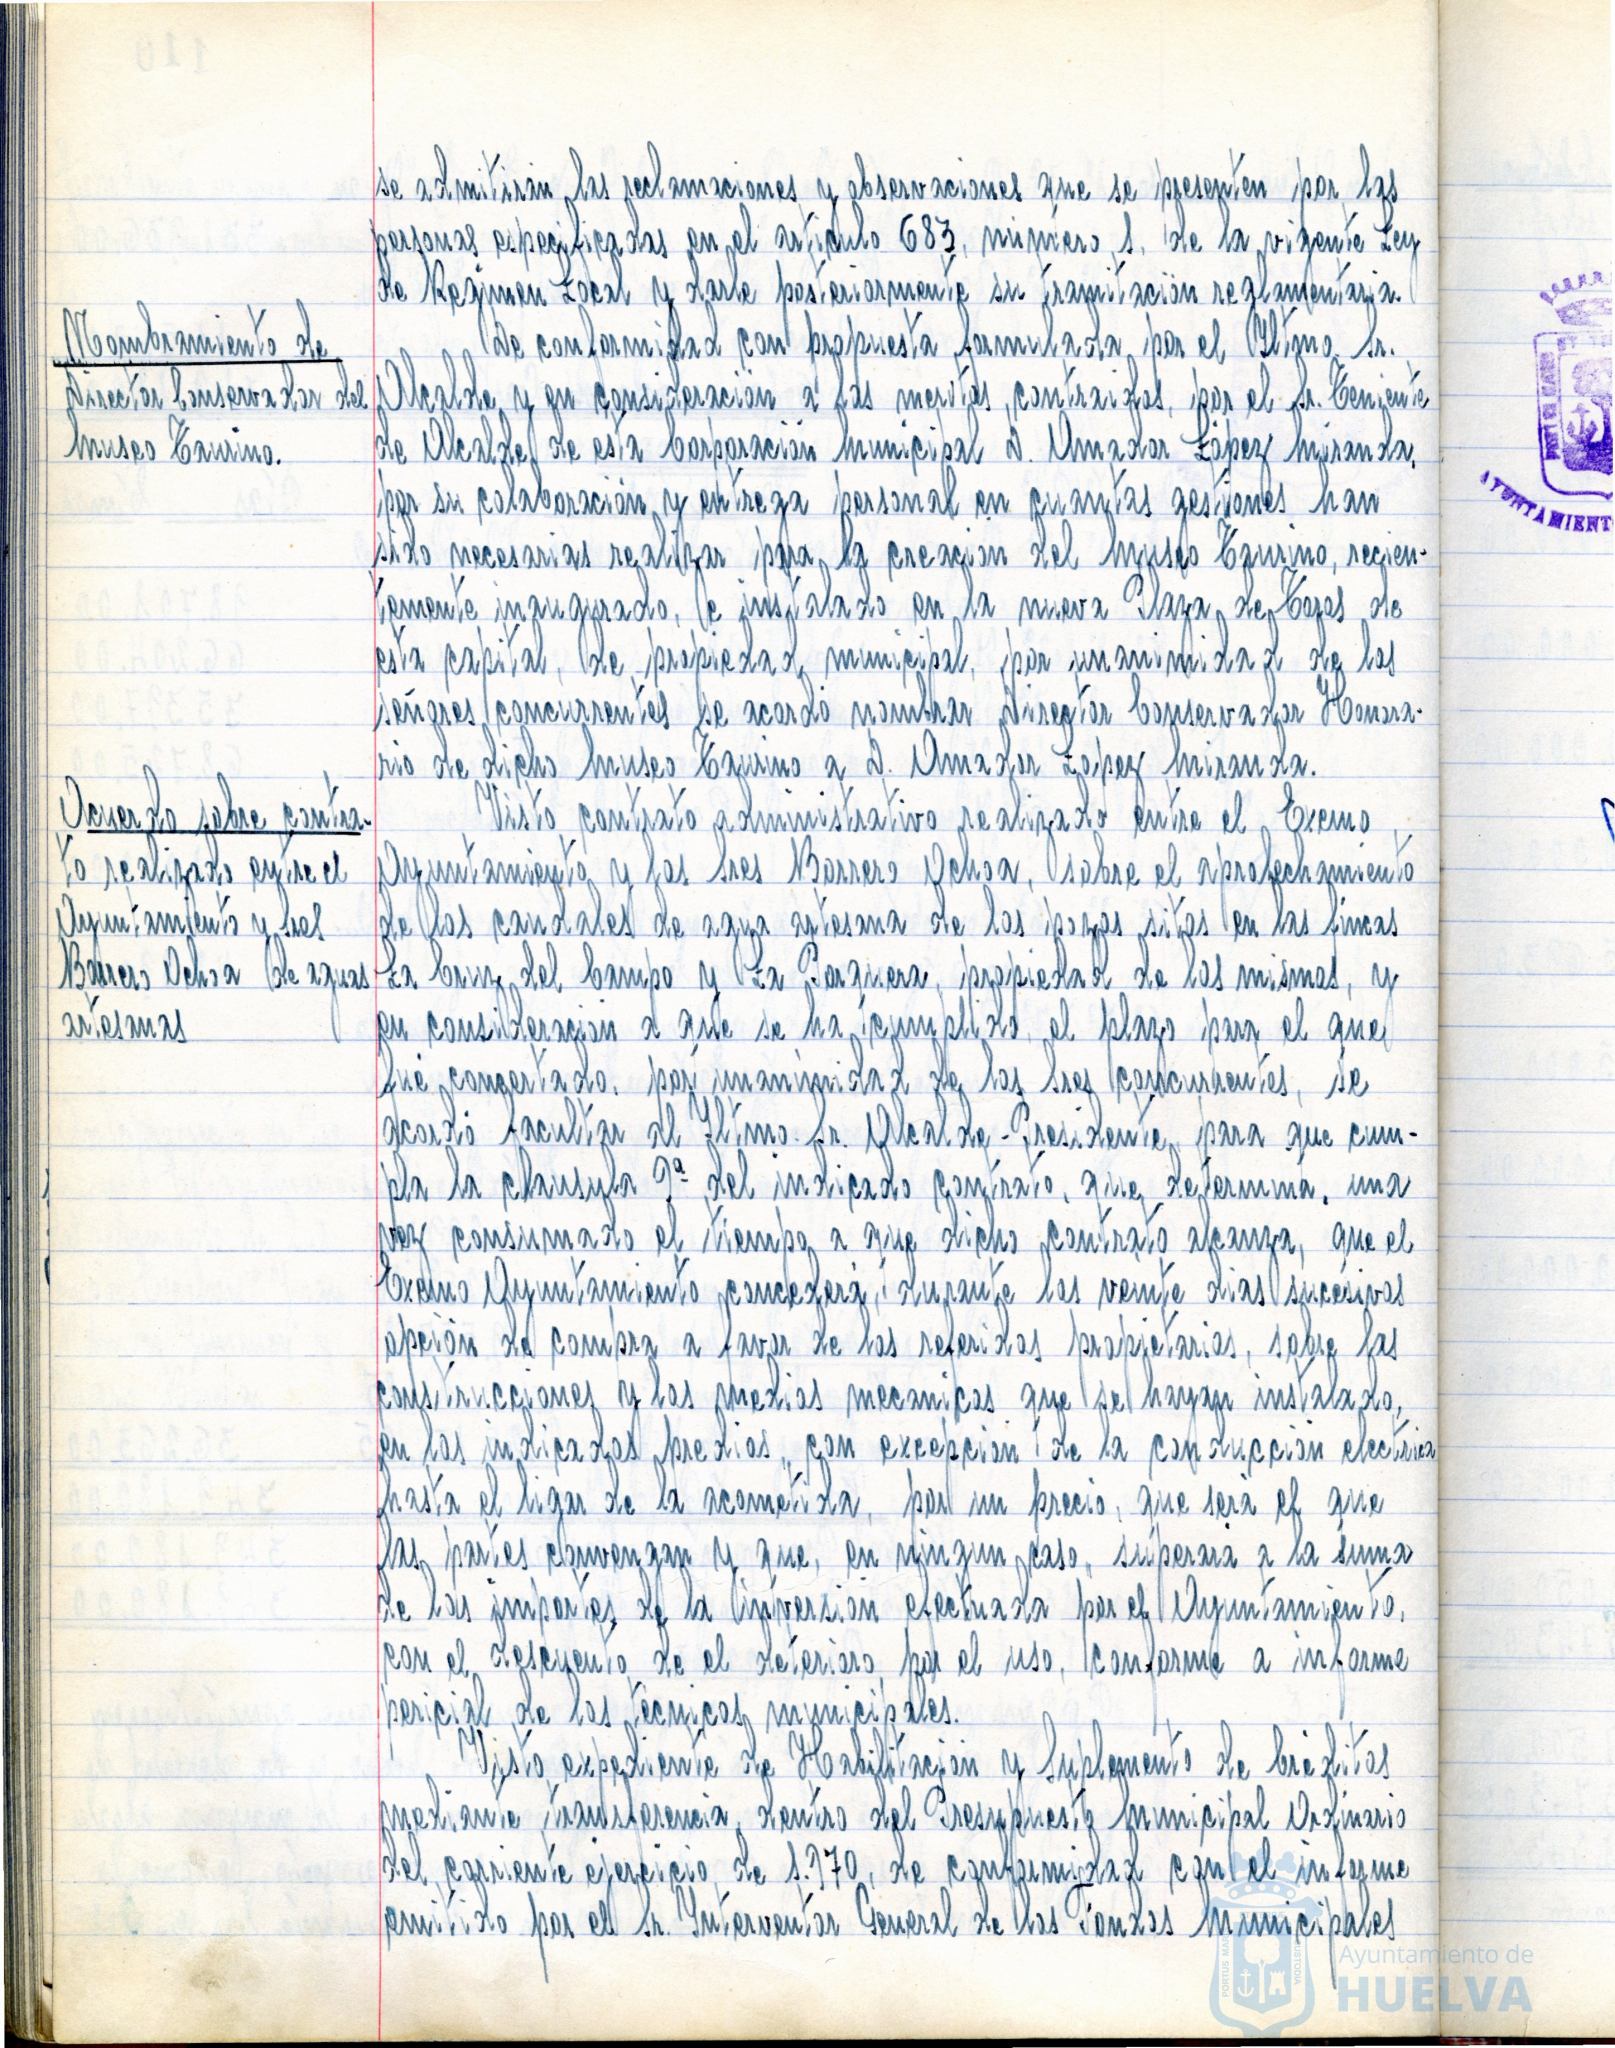 se admitirán las reclamaciones y observaciones que se presenten por las
personas especificadas en el articulo 683, número 1, de la vigente Ley
de Regimen Local y darle posteriormente su tramitación reglamentaria.
Nombramiento de
Director Conservador del
Museo Taurino.
De conformidad con propuesta formulada por el Iltmo. Sr.
Alcalde y en consideración a los meritos contraidos, por el Sr. Teniente
de Alcalde de esta Corporación Municipal D. Amador López Miranda,
por su colaboración y entrega personal en cuantas gestiones han
sido necesarias realizar para la creación del Museo Taurino, recien-
temente inaugurado, e instalado en la nueva Plaza de Toros de
esta capital, de propiedad municipal, por unanimidad de los
señores concurrentes se acordó nombrar Director Conservador Honora-
rio de dicho Museo Taurino a D. Amador López Miranda.
Acuerdo sobre contra-
to realizado entre el
Ayuntamiento y Sres
Borrero Ochoa de aguas
artesanas
Visto contrato administrativo realizado entre el Excmo
Ayuntamiento y los Sres Borrero Ochoa, sobre el aprovechamiento
de los caudales de agua artesana de los pozos sitos en las fincas
La Cruz del Campo y La Parquera, propiedad de los mismos, y
en consideración a que se ha cumplido el plazo para el que
fué concertado, por unanimidad de los Sres concurrentes, se
acordó facultar al Iltmo. Sr. Alcalde-Presidente, para que cum-
pla la clausula 9ª del indicado contrato, que determina, una
vez consumado el tiempo a que dicho contrato alcanza, que el
Excmo Ayuntamiento concederá, durante los veinte dias sucesivos
opción de compra a favor de los referidos propietarios, sobre las
construcciones y los medios mecanicos que se hayan instalado,
en los indicados predios, con excepción de la conducción electrica
hasta el lugar de la acometida, por un precio, que será el que
las partes convengan y que, en ningun caso, superará a la suma
de los importes de la inversión efectuada por el Ayuntamiento,
con el descuento de el deterioro por el uso, conforme a informe
pericial de los técnicos municipales.
Visto expediente de Habilitación y Suplemento de Créditos
mediante transferencia, dentro del Presupuesto Municipal Ordinario
del corriente ejercicio de 1.970, de conformidad con el informe
emitido por el Sr. Interventor General de los Fondos Municipales
AYUNTAMIENTO
Ayuntamiento de
HUELVA